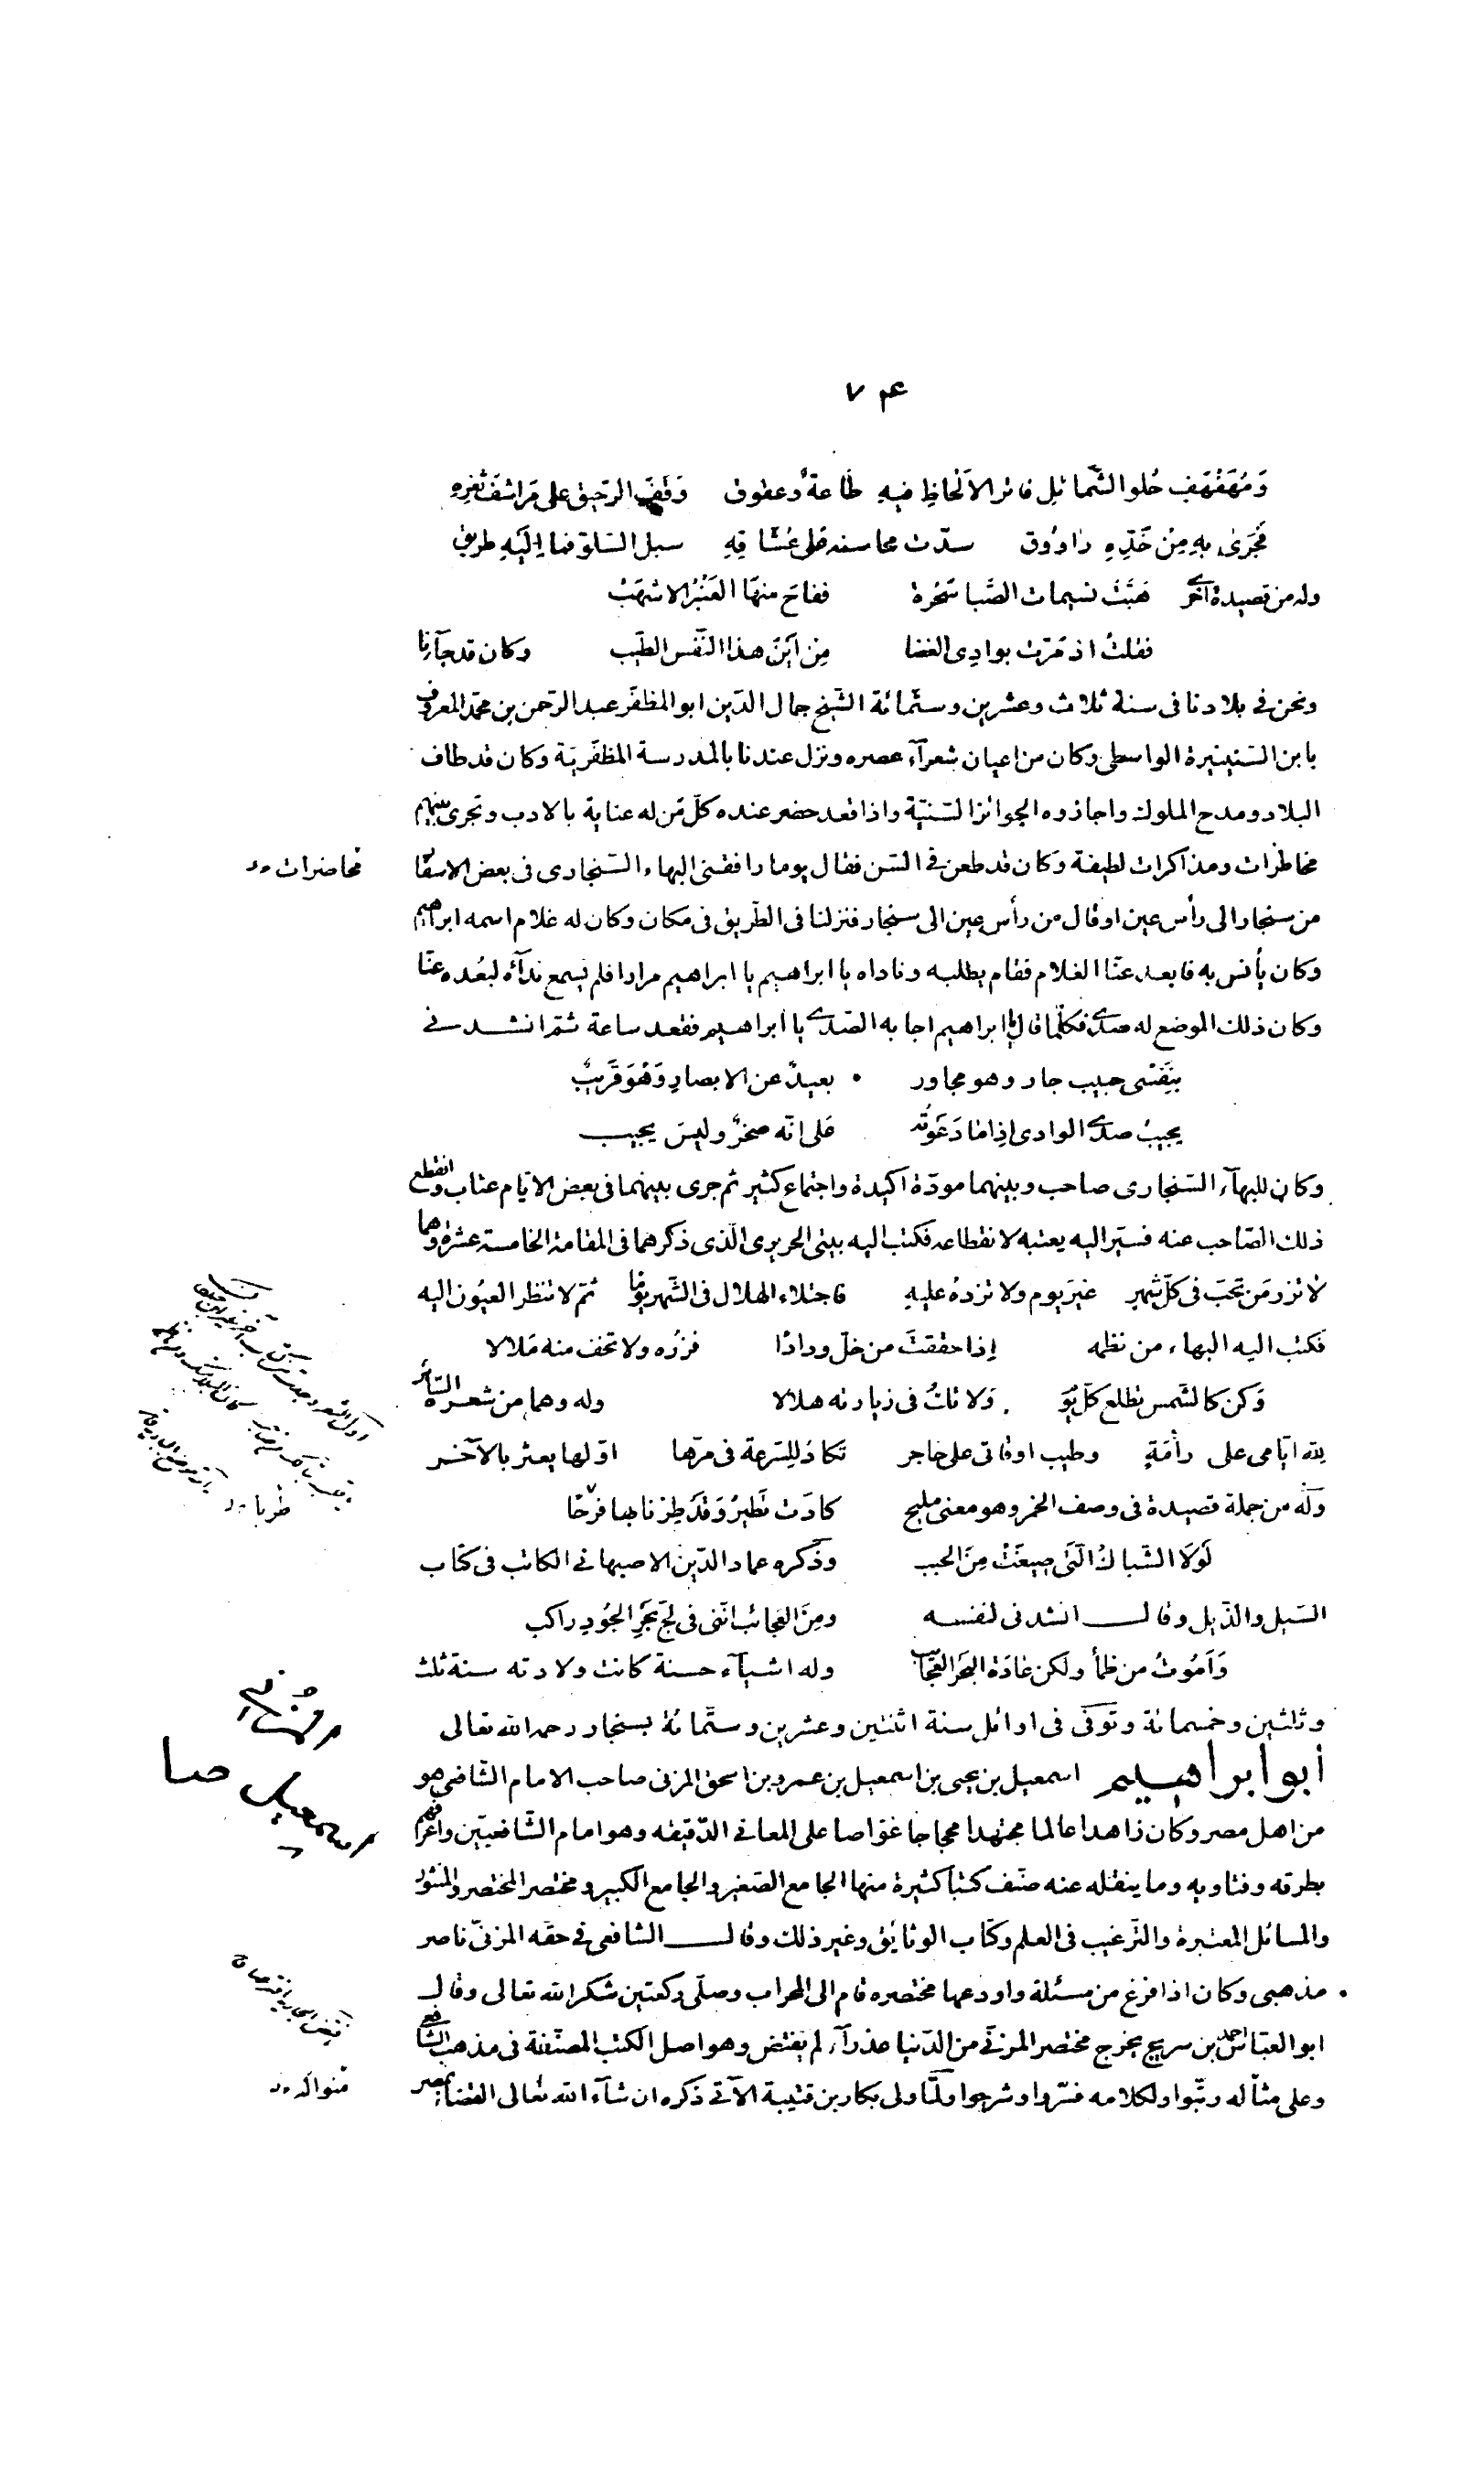 ٧٤
وَمُهَفْهَفٍ حُلو الشّمائلِ فاتر الاَلْحاظِ فيهِ طاعةٌ وعقوق وَقَفَ الرّحيق على مَراشف ثغرِهِ
فَجَرَى بهِ مِنْ خَدّهِ راووق سدّت محاسنه على عُشّاقِهِ سبل السّلوّ فما اِلَيْهِ طريق
وله من قصيدة اخرى هَبَّتْ نسيمات الصَّبا سَحْرة ففاحَ منهَا العَنْبَرُ الاشهَبُ
فقلتُ اذ مَرّت بوادى الغضا مِن اَيْنَ هذا النّفَس الطّيب وكان قد جآءنا
ونحن فى بلادنا فى سنة ثلاث وعشرين وستّمائة الشّيخ جمال الدّين ابو المظفّر عبد الرّحمن بن محمّد المعروف
بابن السّنينيرة الواسطى وكان من اعيان شعرآء عصره ونزل عندنا بالمدرسة المظفّريّة وكان قد طاف
البلاد ومدح الملوك واجازوه الجوائز السّنيّة واذا قعد حضر عنده كلّ مَن له عناية بالادب وتجرى بينهم
مخاطرات ومذاكرات لطيفة وكان قد طعن فى السّن فقال يوما رافقنى البهاء السّنجارى فى بعض الاسفار
محاضرات
من سنجار الى رأس عين او قال من رأس عين الى سنجار فنزلنا فى الطّريق فى مكان وكان له غلام اسمه ابراهيم
وكان يأنس به فابعد عنّا الغلام فقام يطلبه وناداه يا ابراهيم يا ابراهيم مرارا فلم يسمع ندآءه لبُعده عنّا
وكان ذلك الموضع له صدى فكلّما قال يا ابراهيم اجابه الصّدى يا ابراهيم فقعد ساعة ثمّ انشدنى
بِنَفْسى حبيب جار وهو مجاور بعيدٌ عن الابصارِ وَهْوَ قَرِيبٌ
يجيبُ صدى الوادى اِذا ما دَعَوتُه عَلى انّه صخرٌ وليسَ يجيب
وكان للبهآء السّنجارى صاحب وبينهما مودّة اكيدة واجتماع كثير ثم جرى بينهما فى بعض الايّام عتاب وانقطع
ذلك الصّاحب عنه فسيّر اليه يعتبه لانقطاعه فكتب اليه بيتى الحريرى الّذى ذكرهما فى المقامة الخامسة عشرة وهما
لا تزر مَن تحبّ فى كلّ شهرٍ غيرَ يوم ولا تزدهُ عليهِ فاجتلاء الهلال فى الشّهر يوما ثمّ لا تنظر العيُون اليه
فكتب اليه البهاء من نظمه اِذا حققتَ من خلّ ودادًا فزرُه ولا تخف منه مَلالا
وَكن كالشّمس تطلع كلّ يَوم وَلا تكُ فى زيارته هلالا وله وهما من شعره السّائر
للّه ايّامى على رامَةٍ وطيب اوقاتى على حاجر تكادُ للسّرعة فى مرّها اوّلها يعثر بالآخر
وله من جملة قصيدة فى وصف الخمر وهو معنى مليح كادَت تَطيرُ وَقَد طِرنا بها فرَحًا
لَولا الشّباك الّتى صيغَتْ مِنَ الحبب وذكره عماد الدّين الاصبهانى الكاتب فى كتاب
السّيل والذّيل وقال انشدنى لنفسه ومِنَ العَجائب انّنى فى لجّ بَحْرِ الجُودِ راكب
وَاَموُتُ من ظمأ ولكن عَادَة البَحر العَجَائب وله اشيآء حسنة كانت ولادته سنة ثلث
وثلثين وخمسمائة وتوفّى فى اوائل سنة اثنتين وعشرين وستّمائة بسنجار رحمه الله تعالى
المُزنى
ابو ابراهيم اسمعيل بن يحيى بن اسمعيل بن عمرو بن اسحق المزنى صاحب الامام الشّافعى هو
اسمعيل
من اهل مصر وكان زاهدا عالما مجتهدا محجاجا غوّاصا على المعانى الدّقيقه وهو امام الشّافعيّين واعرفهم
بطرقه وفتاويه وما ينقله عنه صنّف كتبا كثيرة منها الجامع الصّغير والجامع الكبير ومختصر المختصر والمنثور
والمسائل المعتبرة والتّرغيب فى العلم وكتاب الوثائق وغير ذلك وقال الشافعى فى حقّه المزنىّ ناصر
مذهبى وكان اذا فرغ من مسئلة واودعها مختصره قام الى المحراب وصلّى ركعتين شكرا لله تعالى وقال
ابو العبّاس احمد بن سريج يخرج مختصر المزنى من الدّنيا عذرآء لم يفتض وهو اصل الكتب المصنّفة فى مذهب الشافعى
وعلى مثاله رتّبوا ولكلامه فسّروا وشرحوا ولمّا ولى بكار بن قتيبة الآتى ذكره ان شآء الله تعالى القضاء بمصر
منواله